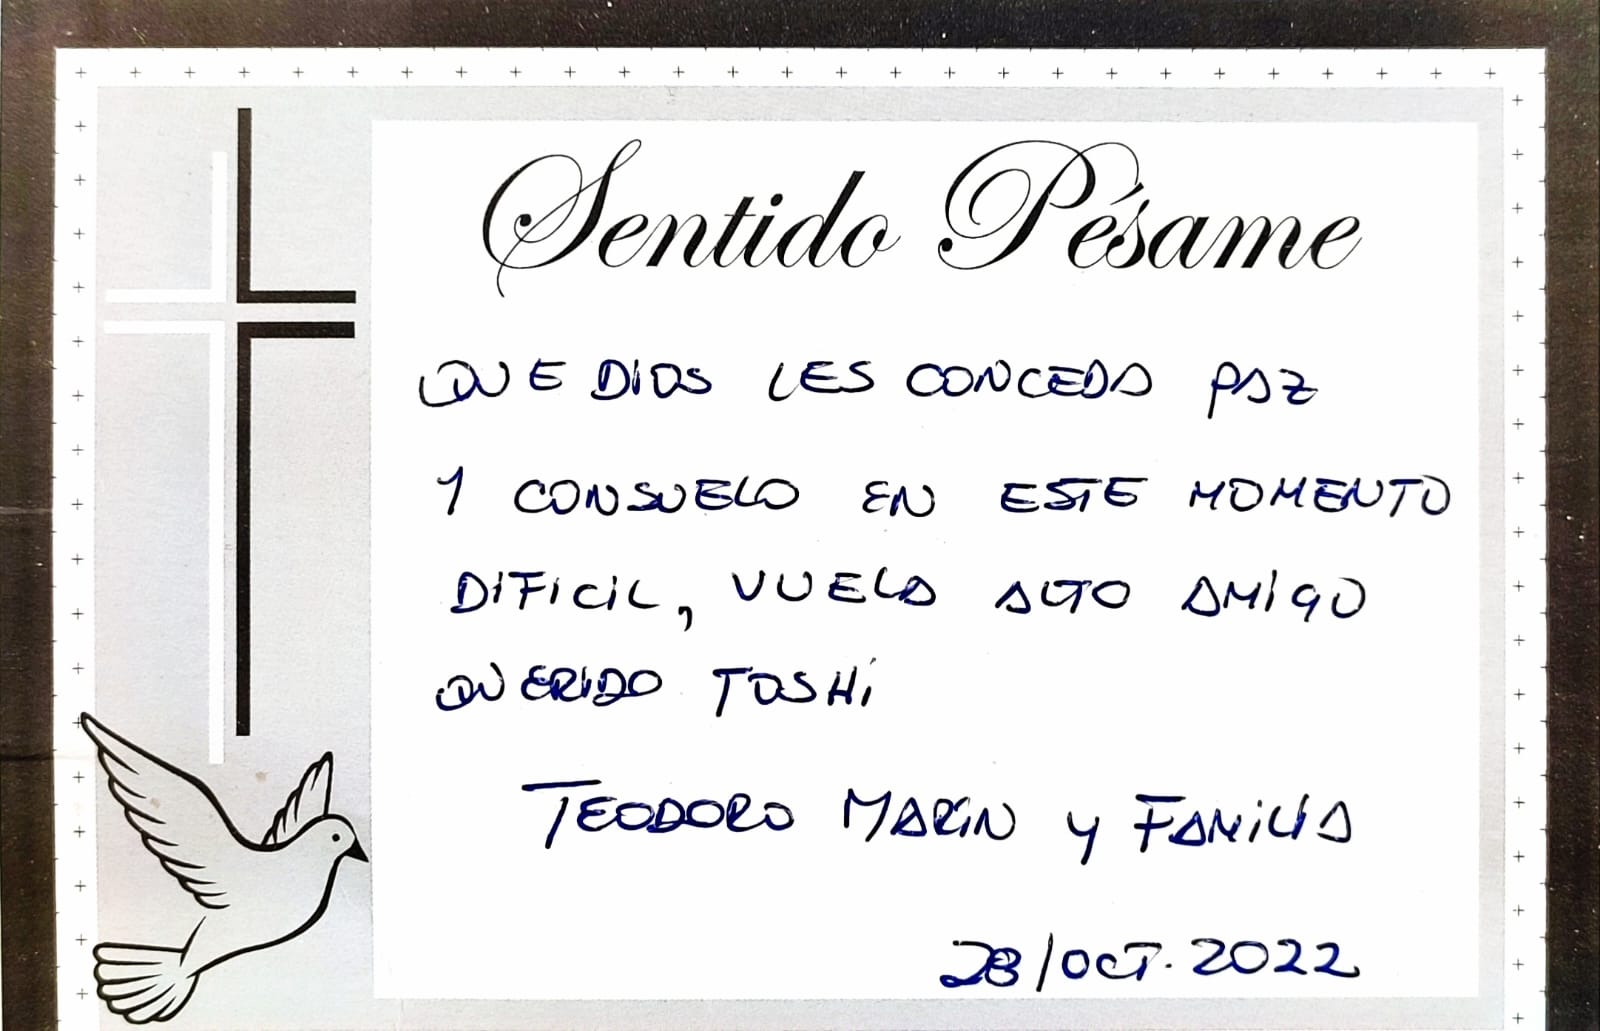 Sentido Pésame
QUE DIOS LES CONCEDA PAZ
Y CONSUELO EN ESTE MOMENTO
DIFICIL, VUELA ALTO AMIGO
QUERIDO TOSHI
TEODORO MARIN Y FAMILIA
28/OCT. 2022